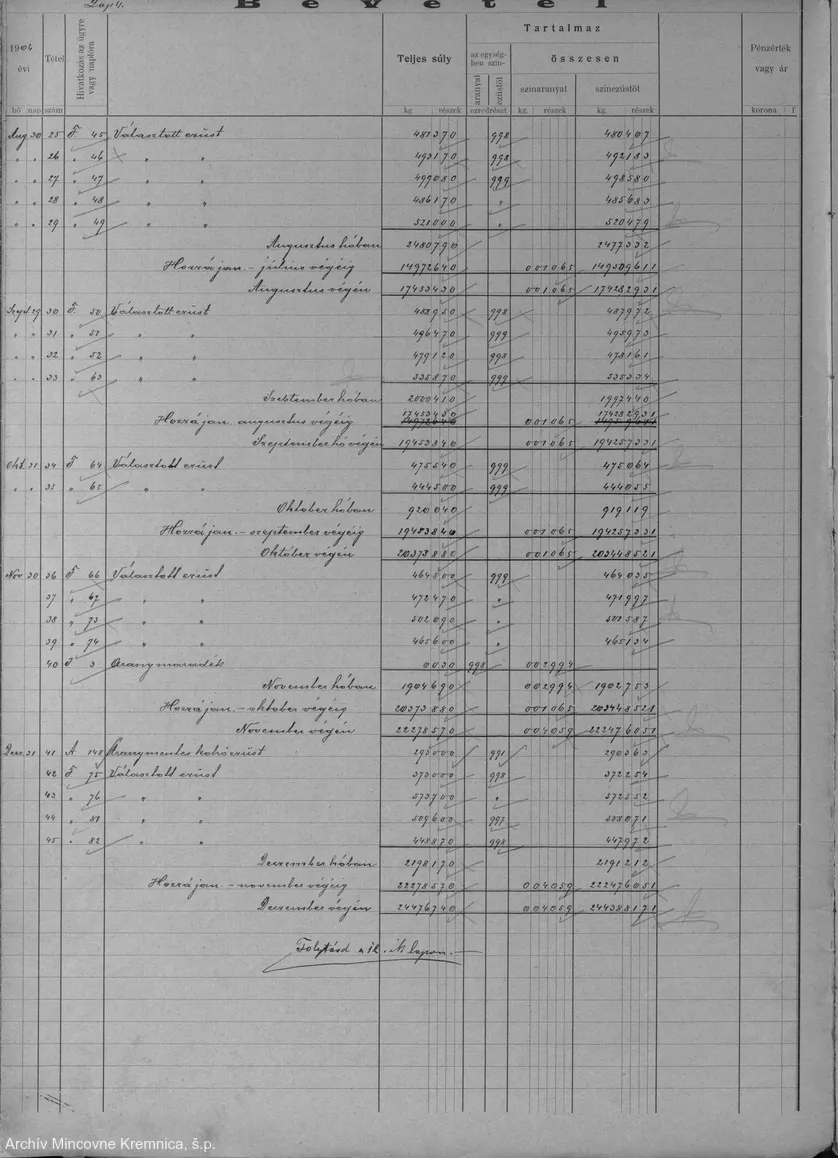 Bevétel
1904 évi
hó nap
Tétel szám
Hivatkozás az ügyre vagy naplóra
Teljes súly
kg. részek
Tartalmaz
az egységben szín-
aranyat ezüstöt
ezredrészt
összesen
színaranyat
kg. részek
színezüstöt
kg. részek
Pénzérték vagy ár
korona f.
Aug 30 25 F. 45 Választott ezüst 481370 998 480407
" " 26 " 46 " " 493170 998 492183
" " 27 " 47 " " 499080 999 498580
" " 28 " 48 " " 486170 " 485683
" " 29 " 49 " " 521000 " 520479
Augusztus hóban 2480790 2477332
Hozzá jan. – július végéig 14972640 001065 149509611
Augusztus végén 17453430 001065 174282931
Szept 29 30 F. 50 Választott ezüst 488950 998 487972
" " 31 " 51 " " 496470 999 495973
" " 32 " 52 " " 479120 998 478161
" " 33 " 63 " " 535870 999 535334
Szeptember hóban 2000410 1997440
17453430 174282931
Hozzá jan. augusztus végéig 14972640 001065
Szeptember hó végén 19453840 001065 194257331
Okt. 31 34 F 64 Választott ezüst 475540 999 475064
" " 35 " 65 " " 444500 999 444055
Október hóban 920040 919119
Hozzá jan. – szeptember végéig 19453840 001065 194257331
Október végén 20373880 001065 203448521
Nov 30 36 F 66 Választott ezüst 464500 999 464035
37 " 67 " " 472470 " 471997
38 " 73 " " 502090 " 501587
39 " 74 " " 465600 " 465134
40 F 3 Aranymaradék 0030 998 002994
November hóban 1904690 002994 1902753
Hozzá jan. – október végéig 20373880 001065 203448521
November végén 22278570 004059 222476051
Dez. 31 41 A. 148 Aranymentes kohóezüst 293000 991 290363
42 F 75 Választott ezüst 373000 998 372254
43 " 76 " " 573700 " 572552
44 " 81 " " 509600 997 508071
45 " 82 " " 448870 998 447972
Dezember hóban 2198170 2191212
Hozzá jan. – november végéig 22278570 004059 222476051
Dezember végén 24476740 004059 244388171
Archív Mincovne Kremnica, š.p.